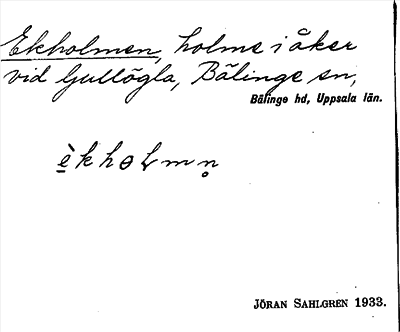 Ekholmen, holme i åker
vid Gullögla, Bälinge sn,
Bälinge hd, Uppsala län.
è̱khɵɫmn̥
JÖRAN SAHLGREN 1933.